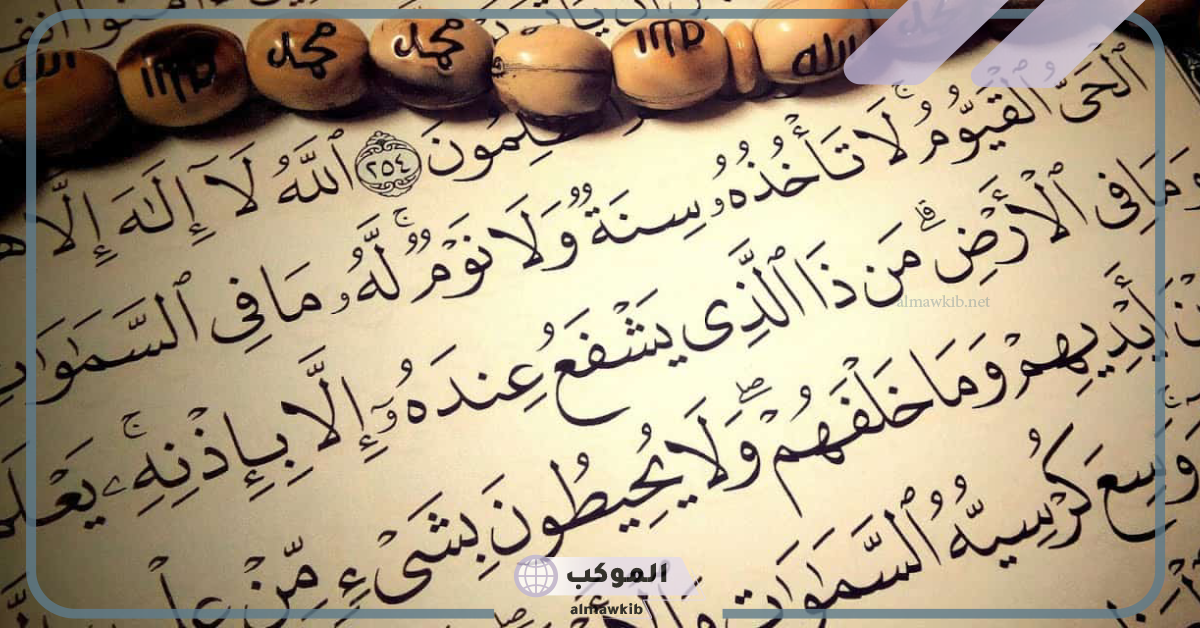 الله محمد محمد الله
ٱللَّهُ لَآ إِلَٰهَ إِلَّا ٢٥٤
ٱلْحَىُّ ٱلْقَيُّومُ ۚ لَا تَأْخُذُهُۥ سِنَةٌ وَلَا نَوْمٌ ۚ لَّهُۥ مَا فِى ٱلسَّمَٰوَٰتِ
وَمَا فِى ٱلْأَرْضِ ۗ مَن ذَا ٱلَّذِى يَشْفَعُ عِندَهُۥٓ إِلَّا بِإِذْنِهِۦ ۚ
أَيْدِيهِمْ وَمَا خَلْفَهُمْ ۖ وَلَا يُحِيطُونَ بِشَىْءٍ مِّنْ
وَسِعَ كُرْسِيُّهُ ٱلسَّمَٰوَٰتِ
almawkib.net
الموكب
almawkib